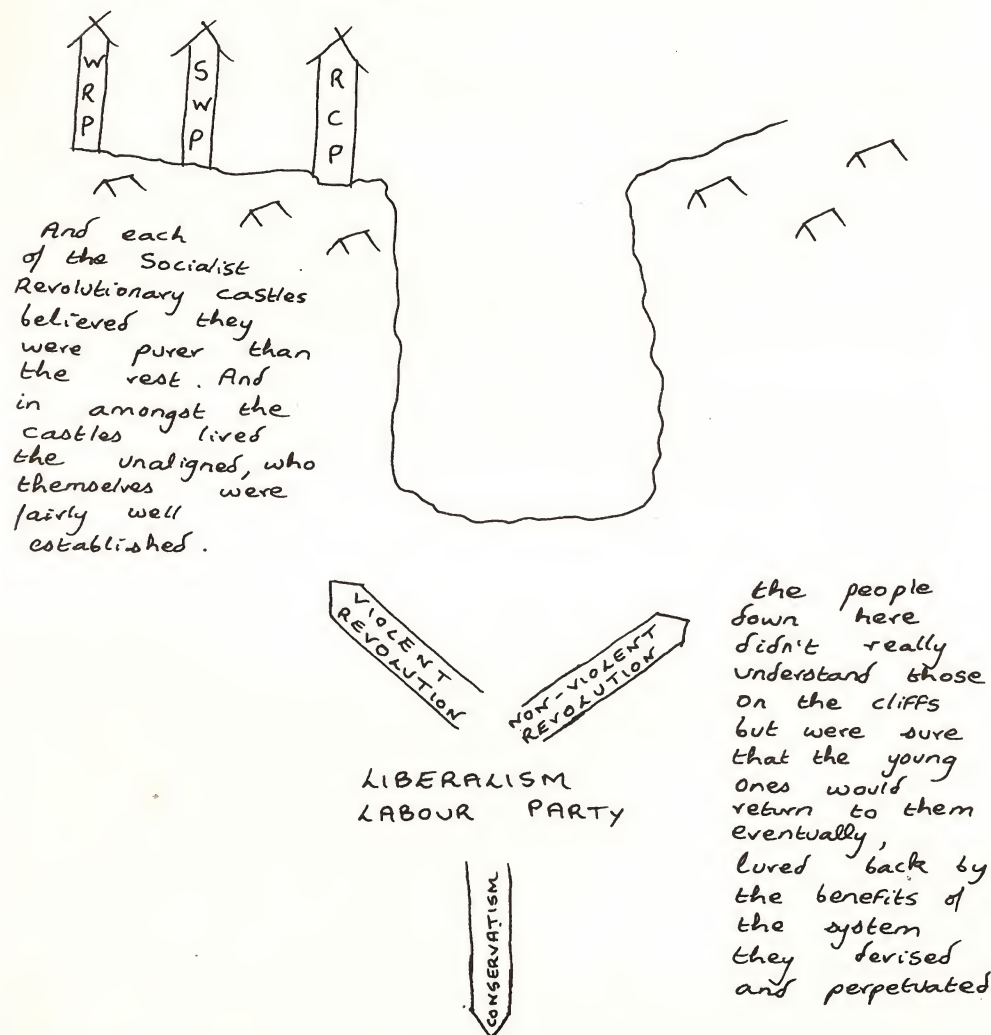 WRP
SWP
RCP
And each
of the Socialist
Revolutionary castles
believed they
were purer than
the rest. And
in amongst the
castles lived
the unaligned, who
themselves were
fairly well
established.
VIOLENT
REVOLUTION
NON-VIOLENT
REVOLUTION
LIBERALISM
LABOUR PARTY
CONSERVATISM
the people
down here
didn't really
understand those
on the cliffs
but were sure
that the young
ones would
return to them
eventually,
lured back by
the benefits of
the system
they devised
and perpetuated